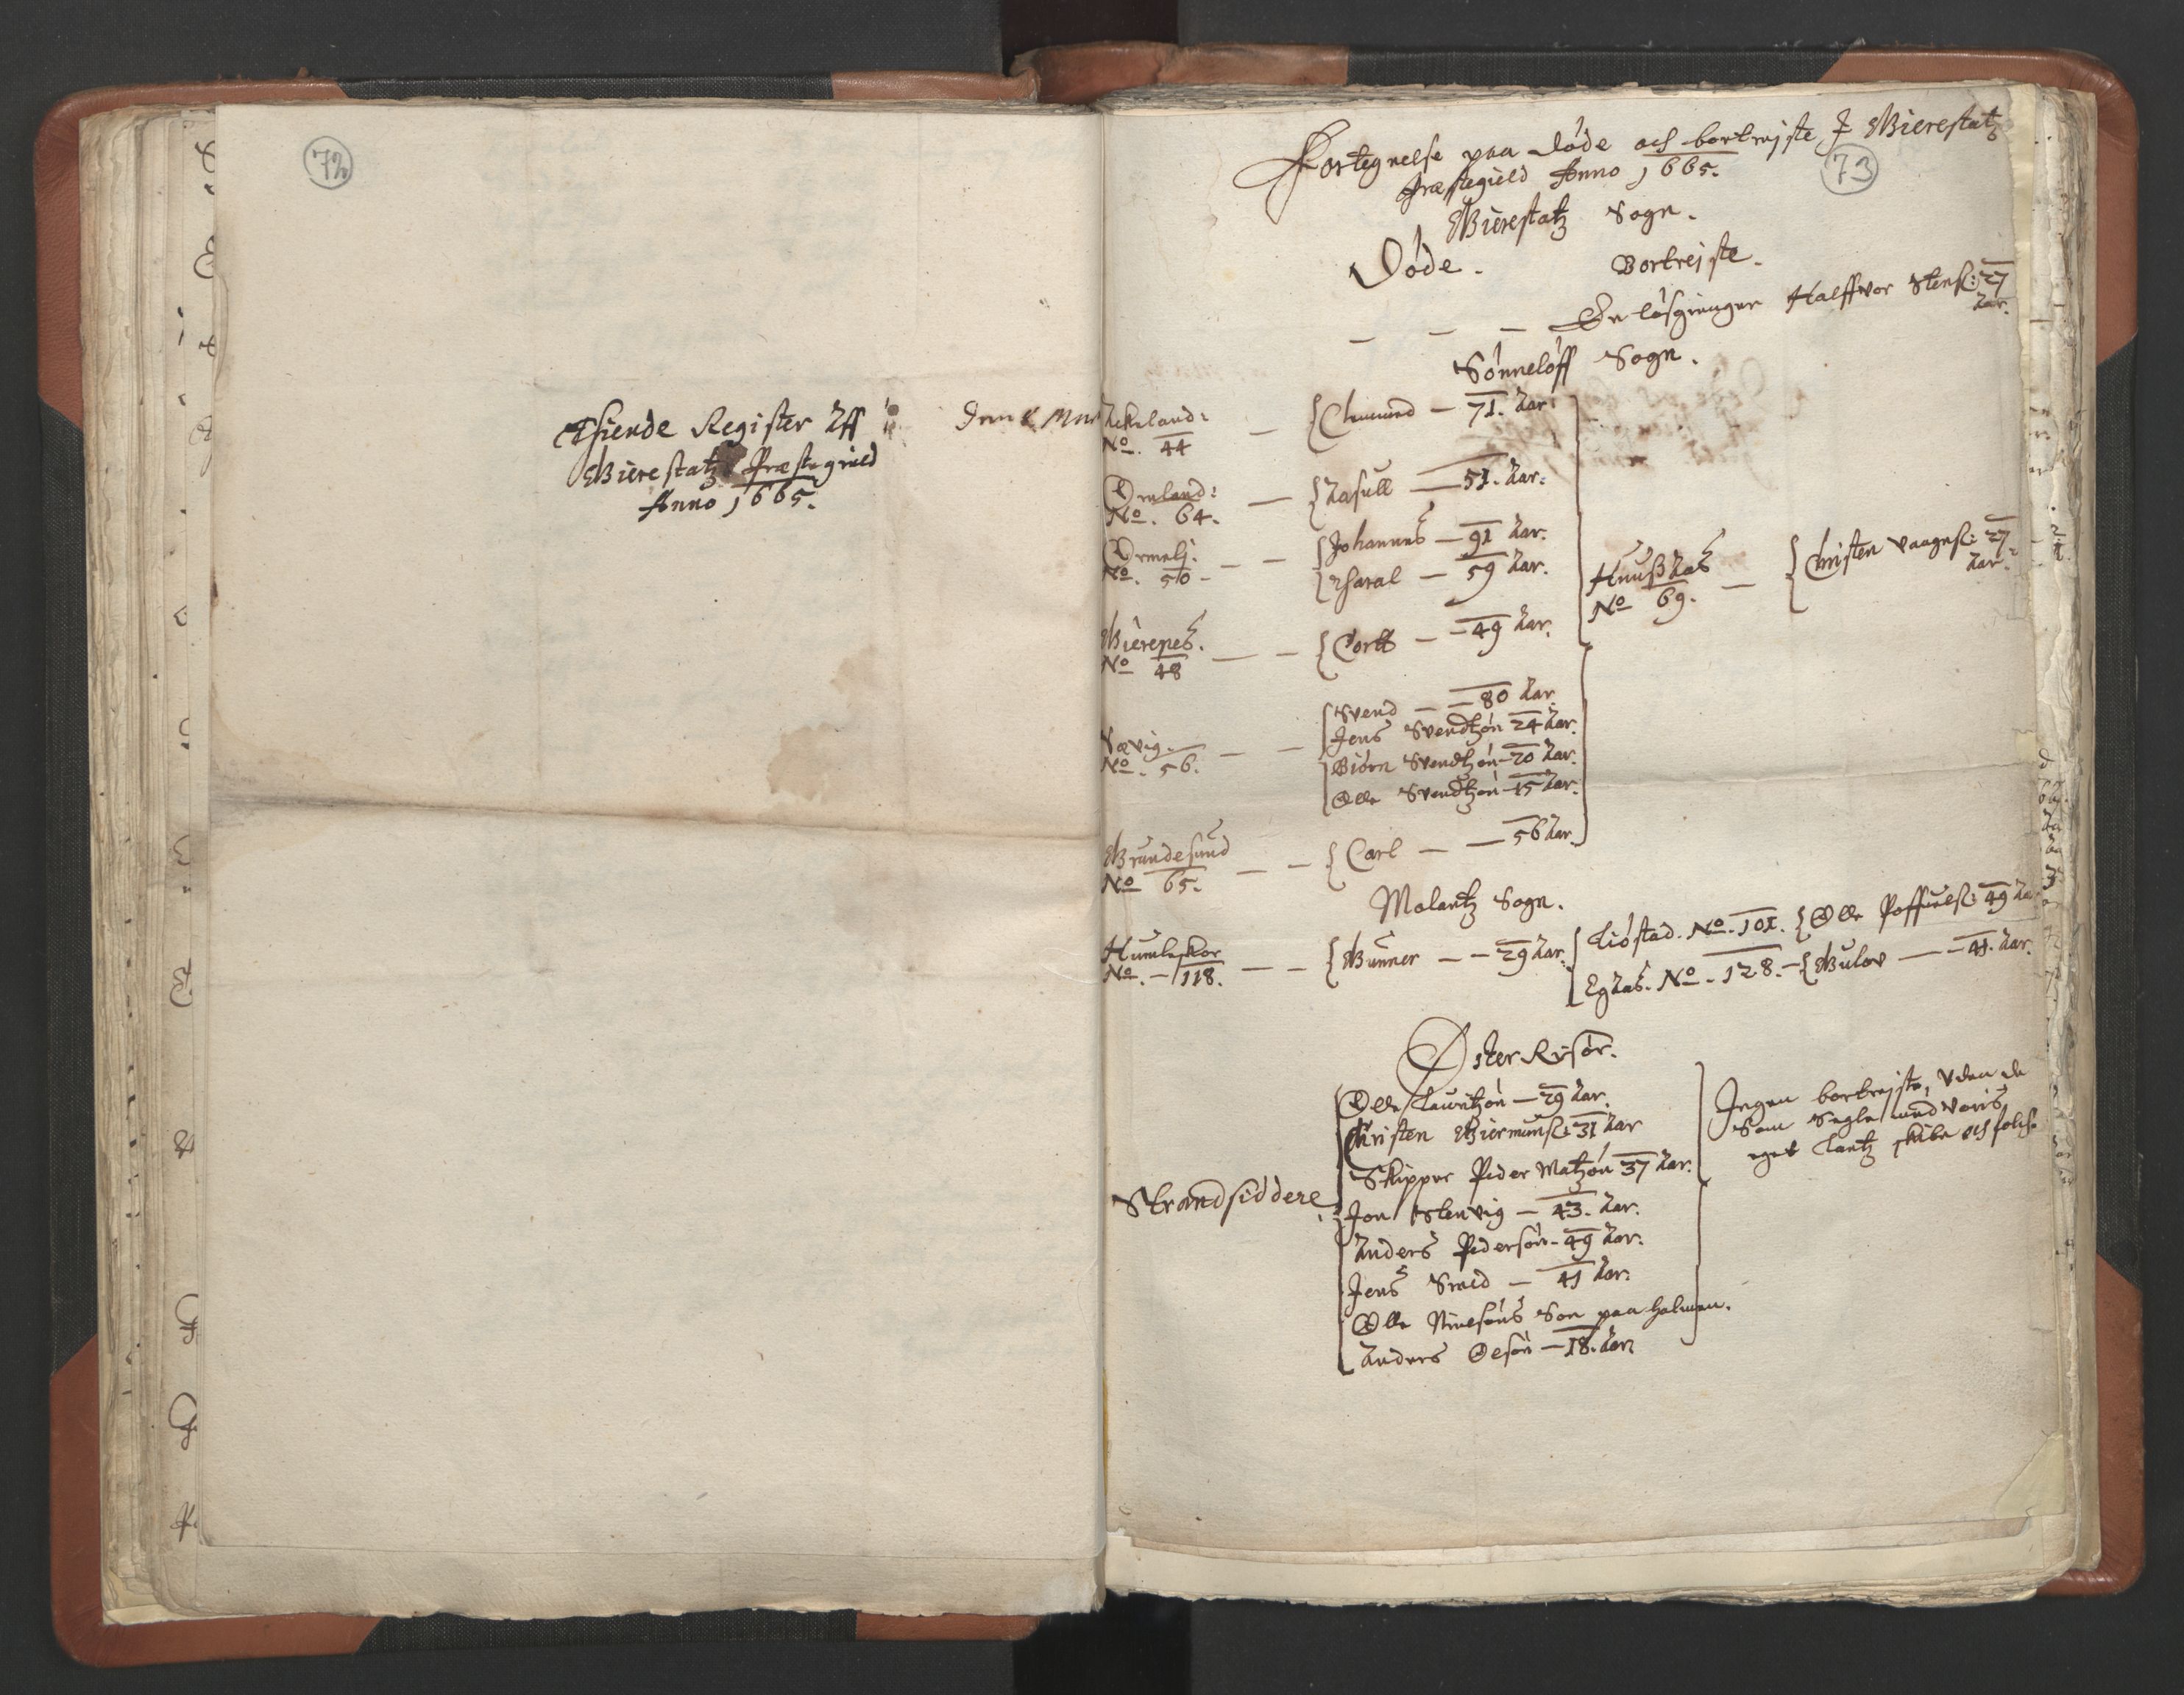 72
Thiende Register Aff
Gierestatz Præstegield
Anno 1665.
73
Fortegnelse paa døde och bortrejste J Gierestatz
Præstegield Anno 1665.
Gierestatz Sogn.
Døde. Bortrejste.
En løsgienger Halffvor Stensß: 27
Aar.
Sønneløff Sogn.
Ackeland: No. 44 Amund 71. Aar.
No. 64. Aasull 51. Aar.
No. 50 Johannes 91 Aar.
Tharal 59 Aar.
Knußaas No 69. Christen Aagesß: 27 Aar.
No 48 Cortt 49 Aar.
Sævig. No. 56. Svend 80 Aar.
Jens Svendtzøn 24 Aar.
Biørn Svendtzøn 20 Aar.
Olle Svendtzøn 15 Aar.
Grundesund No 65. Carl 56 Aar.
Molantz Sogn.
Humleskor No. 118. Gunner 29 Aar.
Liøstad. No. 101. Olle 49 Aar
Egaas. No. 128. Gulov 41. Aar.
Øster Risør.
Strandsiddere
Olle Lauritzøn 29 Aar.
Christen Giermunsß: 31 Aar
Skipper Peder Matzøn 37 Aar.
Jon Stenvig 43. Aar.
Anders Pedersøn 49 Aar.
Jens Smed 41 Aar.
Olle Nielsøns Søn paa holmen.
Anders Olesøn 18. Aar
Ingen bortrejste, uden de
som Segle med voris
eget Lantz skibe och folch